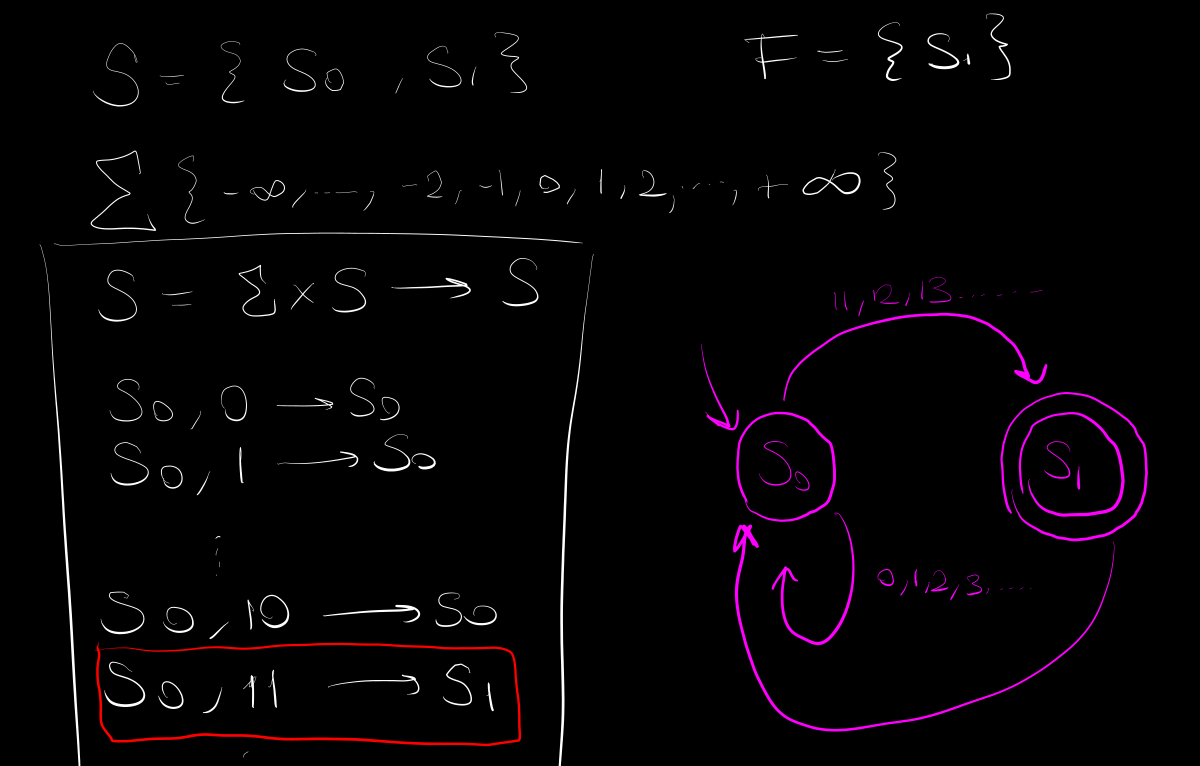 S = { S0 , S1 }
F = { S1 }
∑ { -∞, ..., -2, -1, 0, 1, 2, ..., +∞ }
S = Σ × S → S
S0, 0 → S0
S0, 1 → S0
⋮
S0, 10 → S0
S0, 11 → S1
11, 12, 13.........
S0
S1
0, 1, 2, 3, .....